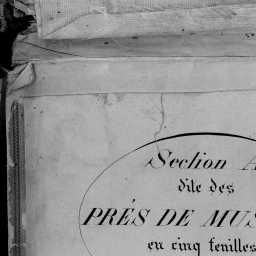 Section A
dite des
PRÉS DE MUS
en cinq feuilles